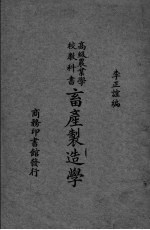 李正誼編
高級農業學
校教科書
畜產製造學
商務印書館發行